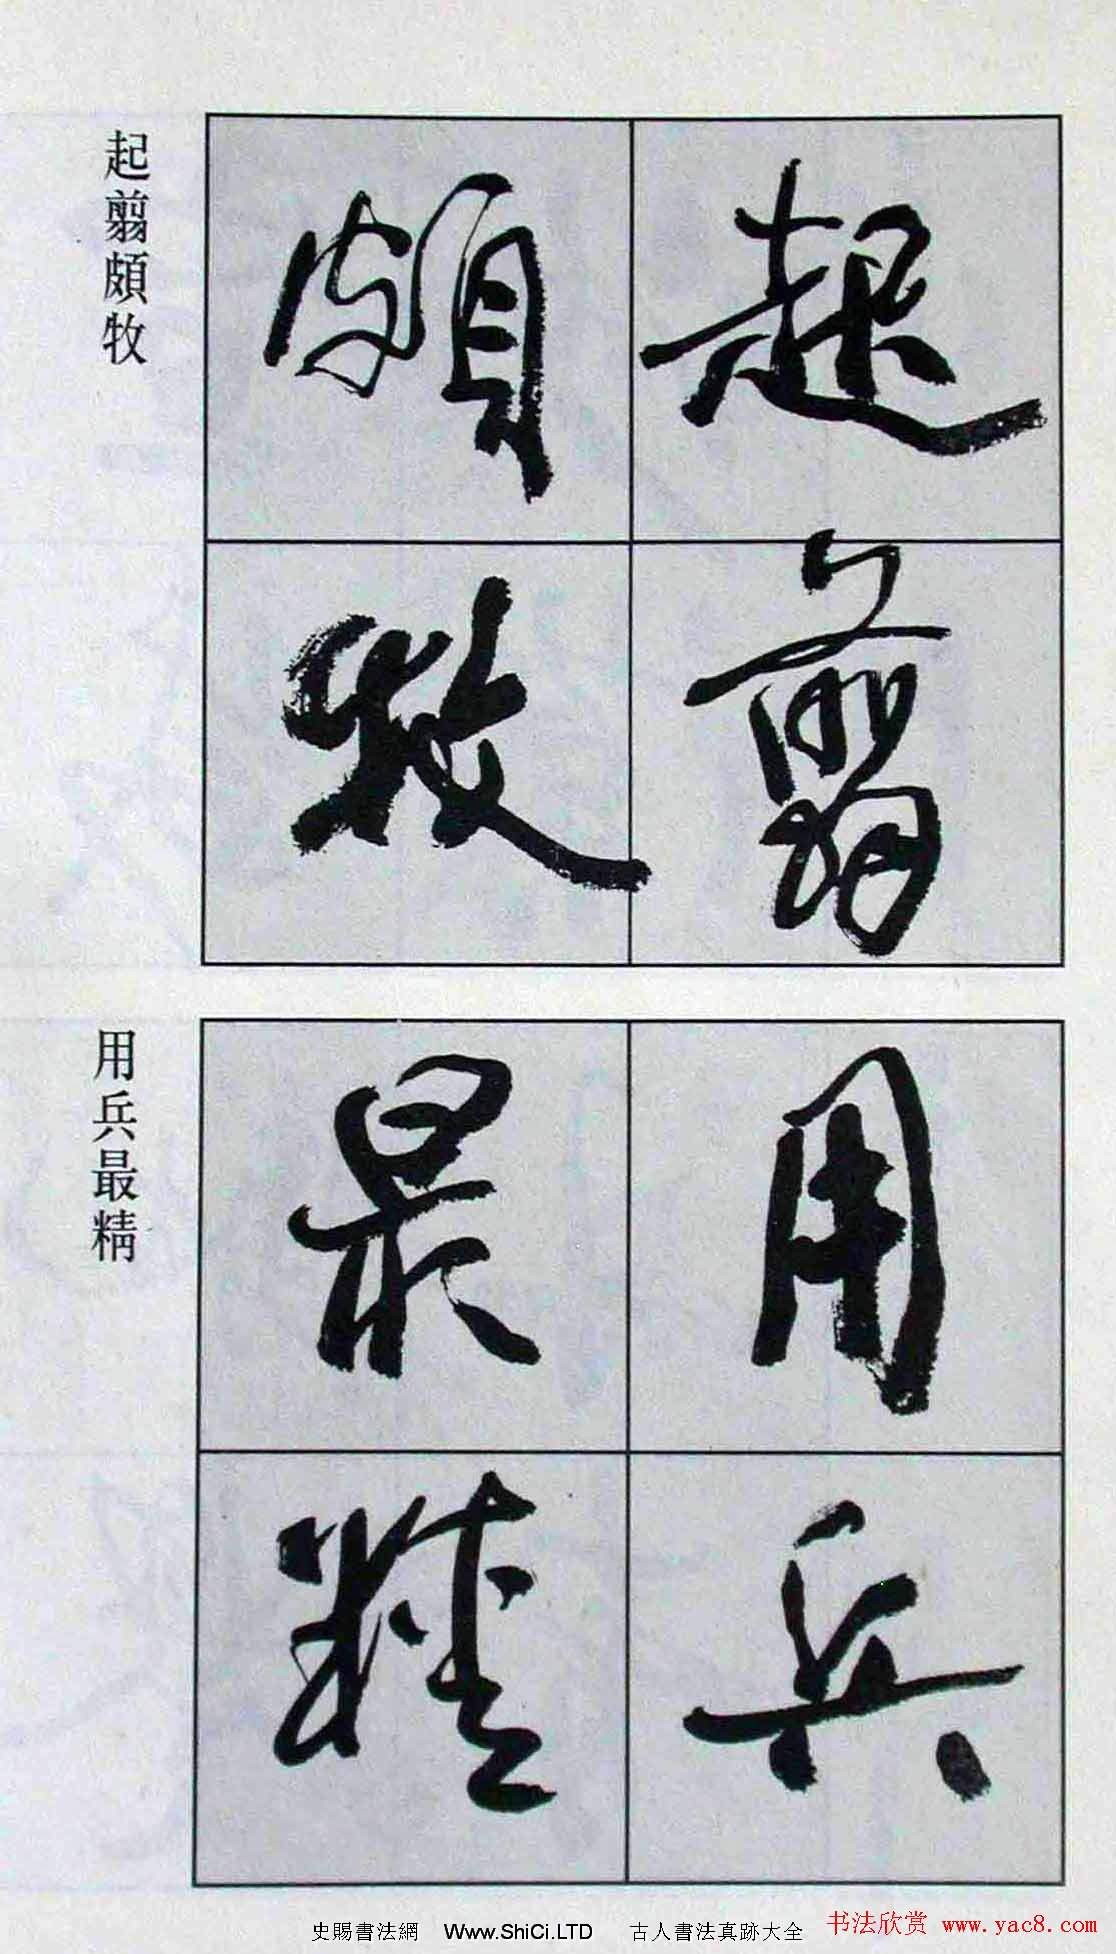 起翦頗牧
起翦
頗牧
用兵最精
用兵
最精
史賜書法網 Www.ShiCi.LTD 古人書法真跡大全
书法欣赏 www.yac8.com